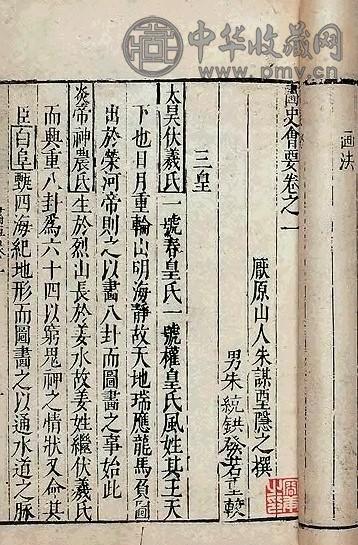 中华收藏网
www.pmv.cn
画法
畫史會要卷之一
厭原山人朱謀垔隱之撰
男朱統鉷發若重較
三皇
太昊伏羲氏一號春皇氏一號權皇氏風姓其王天
下也日月重輪山明海靜故天地瑞應龍馬負圖
出於榮河帝則之以畫八卦而圖畫之事始此
炎帝神農氏生於烈山長於姜水故姜姓繼伏羲氏
而興重八卦爲六十四以窮鬼神之情狀又命其
臣白阜甄四海紀地形而圖畫之以通水道之脉